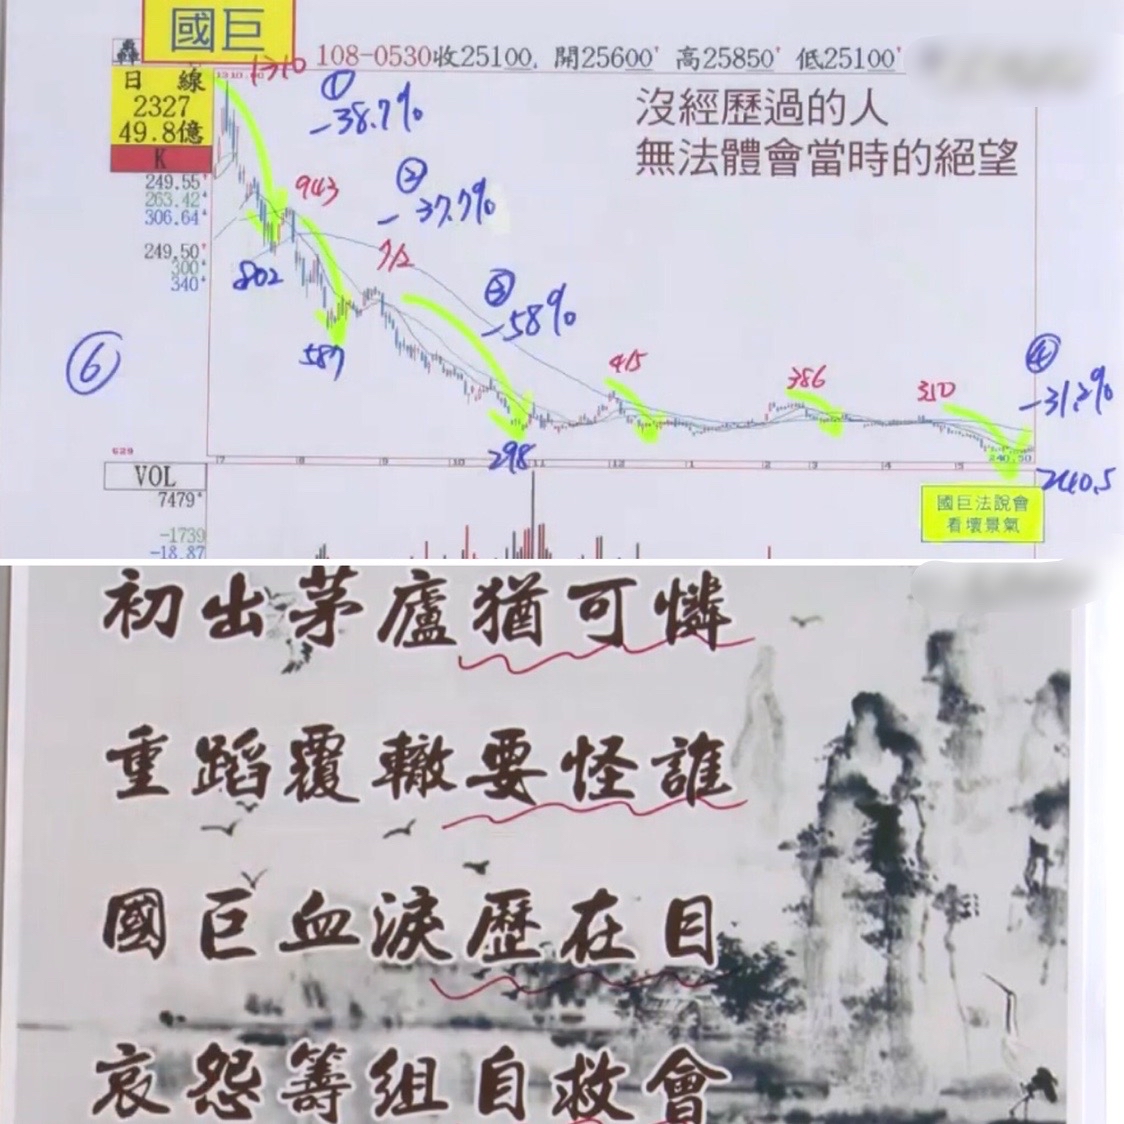 國巨
108-0530收25100, 開25600' 高25850' 低25100'
日 線
2327
49.8億
K
沒經歷過的人
無法體會當時的絕望
1310
① -38.7%
② -37.7%
③ -58%
④ -31.2%
943
712
415
386
310
802
587
298
240.5
240.50
249.55
263.42
306.64
249.50
300
340
⑥
629
7
8
9
10
11
12
1
2
3
4
5
VOL
7479
-1739
-18.87
國巨法說會
看壞景氣
初出茅廬猶可憐
重蹈覆轍要怪誰
國巨血淚歷在目
哀怨籌組自救會